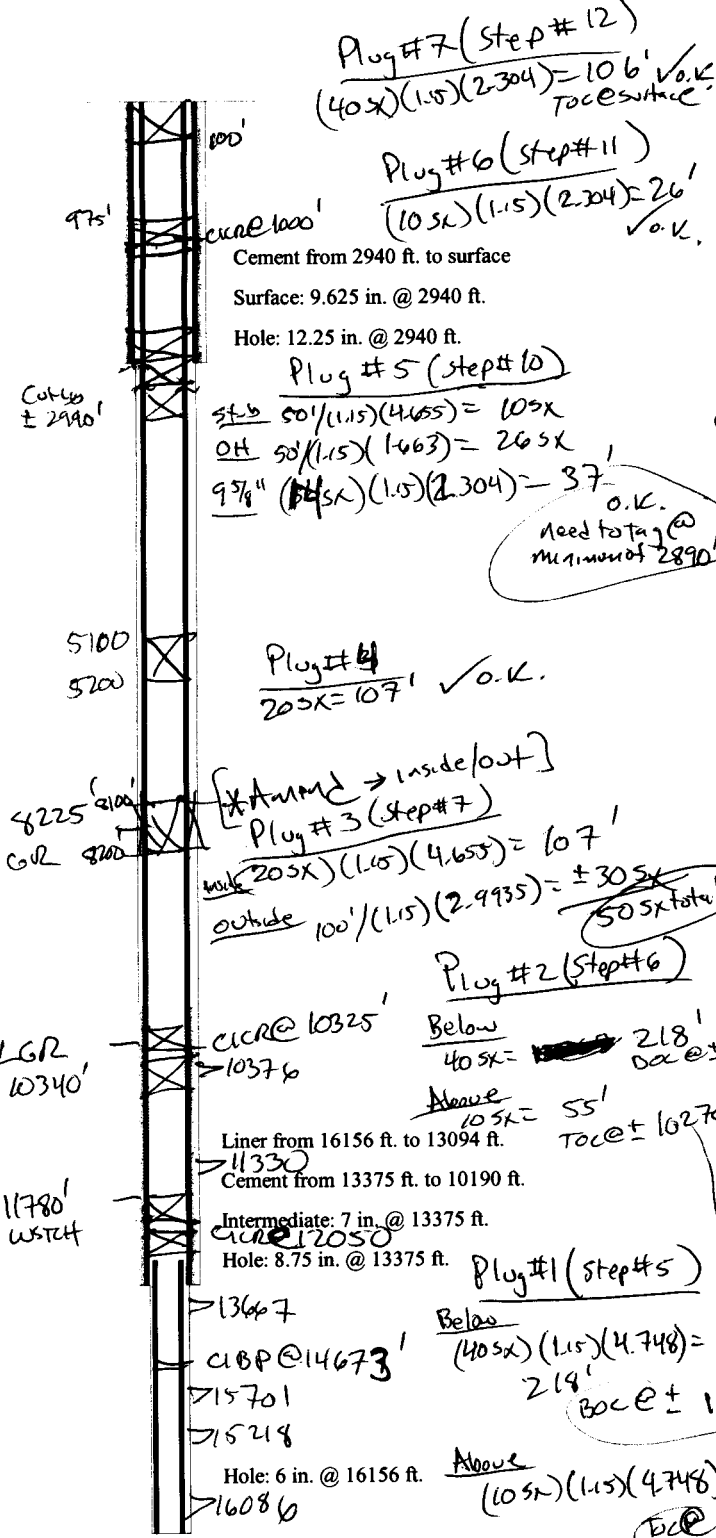 Plug #7 (Step # 12)
(40 sx)(1.15)(2.304) = 106' ✓ o.k.
TOC @ surface
100'
Plug #6 (step #11)
(10 sx)(1.15)(2.304) = 26'
✓ o.k.
975'
CICR @ 1000'
Cement from 2940 ft. to surface
Surface: 9.625 in. @ 2940 ft.
Hole: 12.25 in. @ 2940 ft.
Plug #5 (step #10)
± 2990'
stub 50'/(1.15)(4.655) = 10 sx
OH 50'/(1.15)(1.663) = 26 sx
9 5/8" (14 sx)(1.15)(2.304) = 37'
o.k.
need to tag @
minimum of 2890'
5100
5200
Plug #4
20 sx = 107' ✓ o.k.
[*Amend → inside/out]
Plug #3 (step #7)
8225'
8100'
8200
inside (20 sx)(1.15)(4.655) = 107'
outside 100'/(1.15)(2.9935) = ± 30 sx
50 sx total
Plug #2 (Step #6)
10340'
CICR @ 10325'
10376
Below
40 sx = 218'
DOC @ ±
Above
10 sx = 55'
TOC @ ± 10270
Liner from 16156 ft. to 13094 ft.
11330
Cement from 13375 ft. to 10190 ft.
11780'
Intermediate: 7 in. @ 13375 ft.
CICR @ 12050'
Hole: 8.75 in. @ 13375 ft.
Plug #1 (step #5)
13667
Below
(40 sx)(1.15)(4.748) =
218'
BOC @ ±
CIBP @ 14673'
15701
15218
Hole: 6 in. @ 16156 ft.
Above
(10 sx)(1.15)(4.748)
TOC @
16086